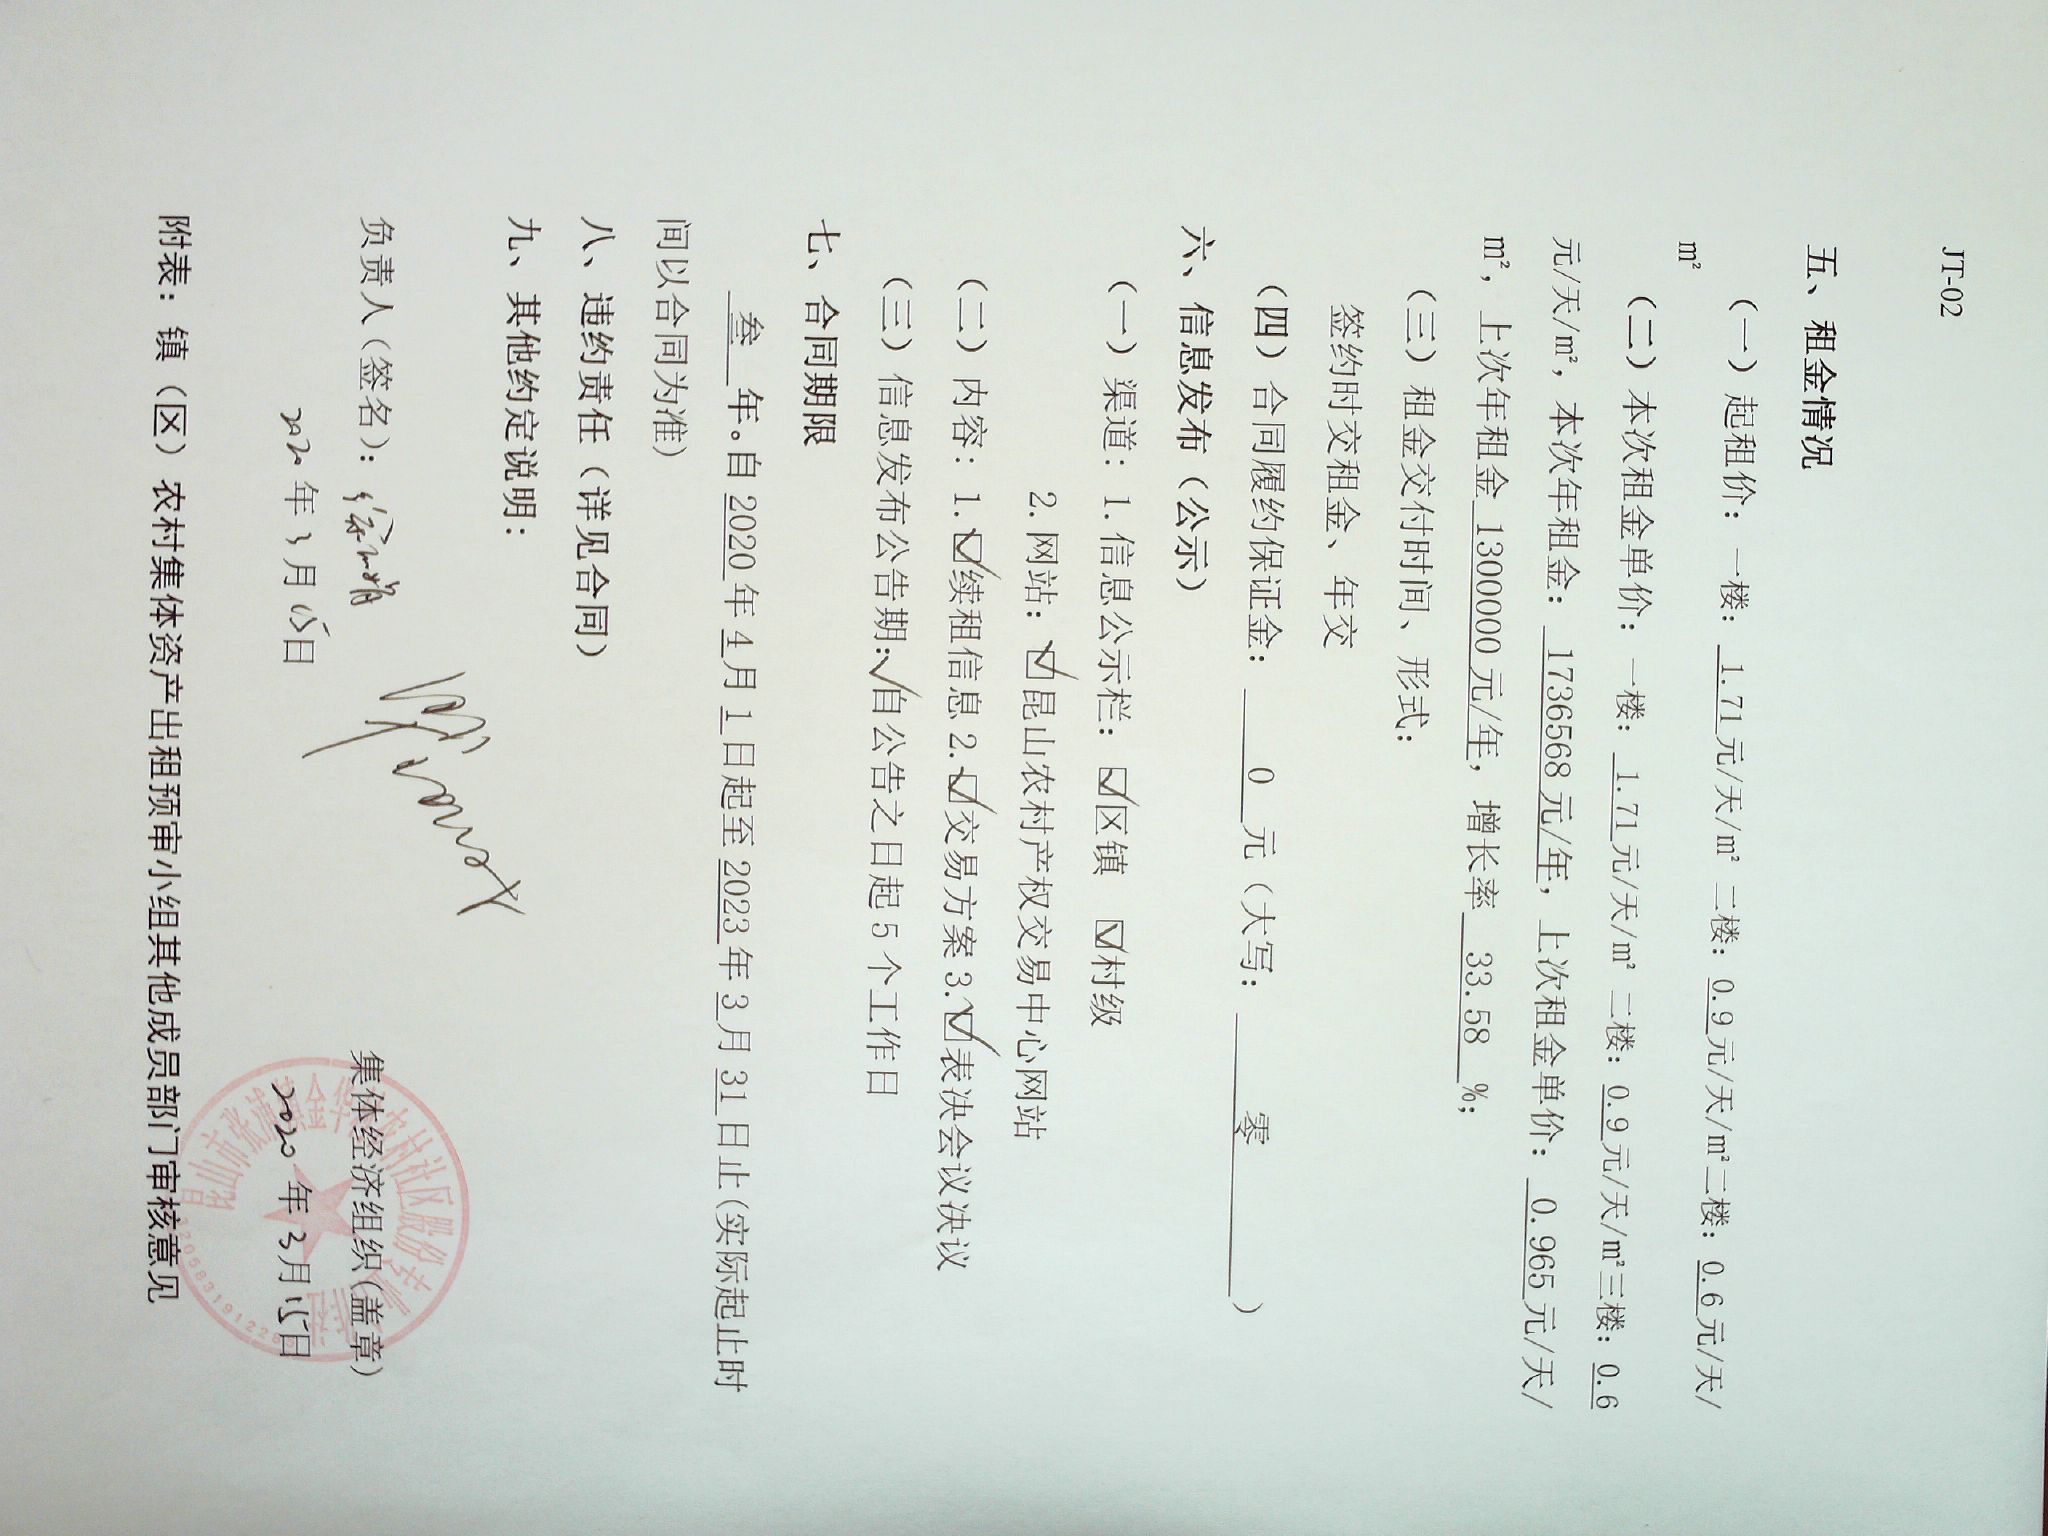 JT-02
五、租金情况
（一）起租价：一楼：1.71元/天/㎡ 二楼：0.9元/天/㎡二楼：0.6元/天/
㎡
（二）本次租金单价：一楼：1.71元/天/㎡ 二楼：0.9元/天/㎡三楼：0.6
元/天/㎡，本次年租金：1736568元/年，上次租金单价：0.965元/天/
㎡，上次年租金1300000元/年，增长率 33.58 %；
（三）租金交付时间、形式：
签约时交租金、年交
（四）合同履约保证金： 0 元（大写： 零 ）
六、信息发布（公示）
（一）渠道：1.信息公示栏：☑区镇 ☑村级
2.网站：☑昆山农村产权交易中心网站
（二）内容：1.☑续租信息2.☑交易方案3.☑表决会议决议
（三）信息发布公告期：✓自公告之日起5个工作日
七、合同期限
叁 年。自2020年4月1日起至2023年3月31日止(实际起止时
间以合同为准)
八、违约责任（详见合同）
九、其他约定说明：
负责人(签名)：
集体经济组织(盖章)
2020年3月15日
2020年3月15日
附表：镇（区）农村集体资产出租预审小组其他成员部门审核意见